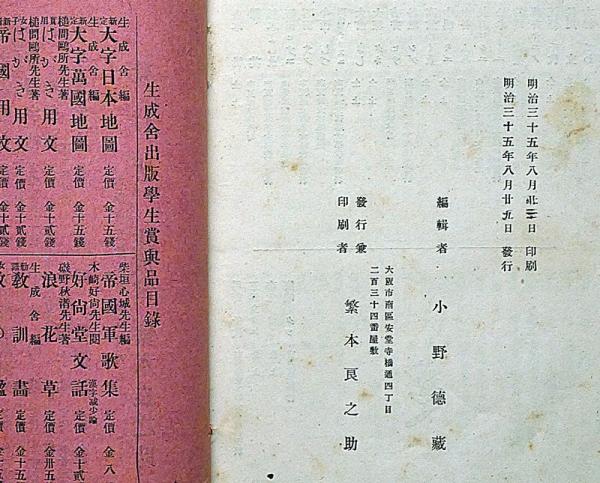 明治三十五年八月廿三日印刷
明治三十五年八月廿九日發行
編輯者 小野德藏
發行兼
印刷者
大阪市南區安堂寺橋通四丁目
二百三十四番屋敷
繁本良之助
生成舍出版學生賞與品目錄
生成舍編
新定 大字日本地圖 定價 金十五錢
生成舍編
新定 大字萬國地圖 定價 金十五錢
槌間鷗所先生著
實用 はがき用文 定價 金十貳錢
槌間鷗所先生著
女子 はがき用文 定價 金十貳錢
帝國用文 定價 金十貳錢
柴垣心城先生編
帝國軍歌集 定價 金八
木崎好尙先生閱
好尙堂文話 漢字減少論 定價 金十貳
磯野秋渚先生著
浪花草 定價 金卅五
生成舍編
敎訓畫 定價 金十五